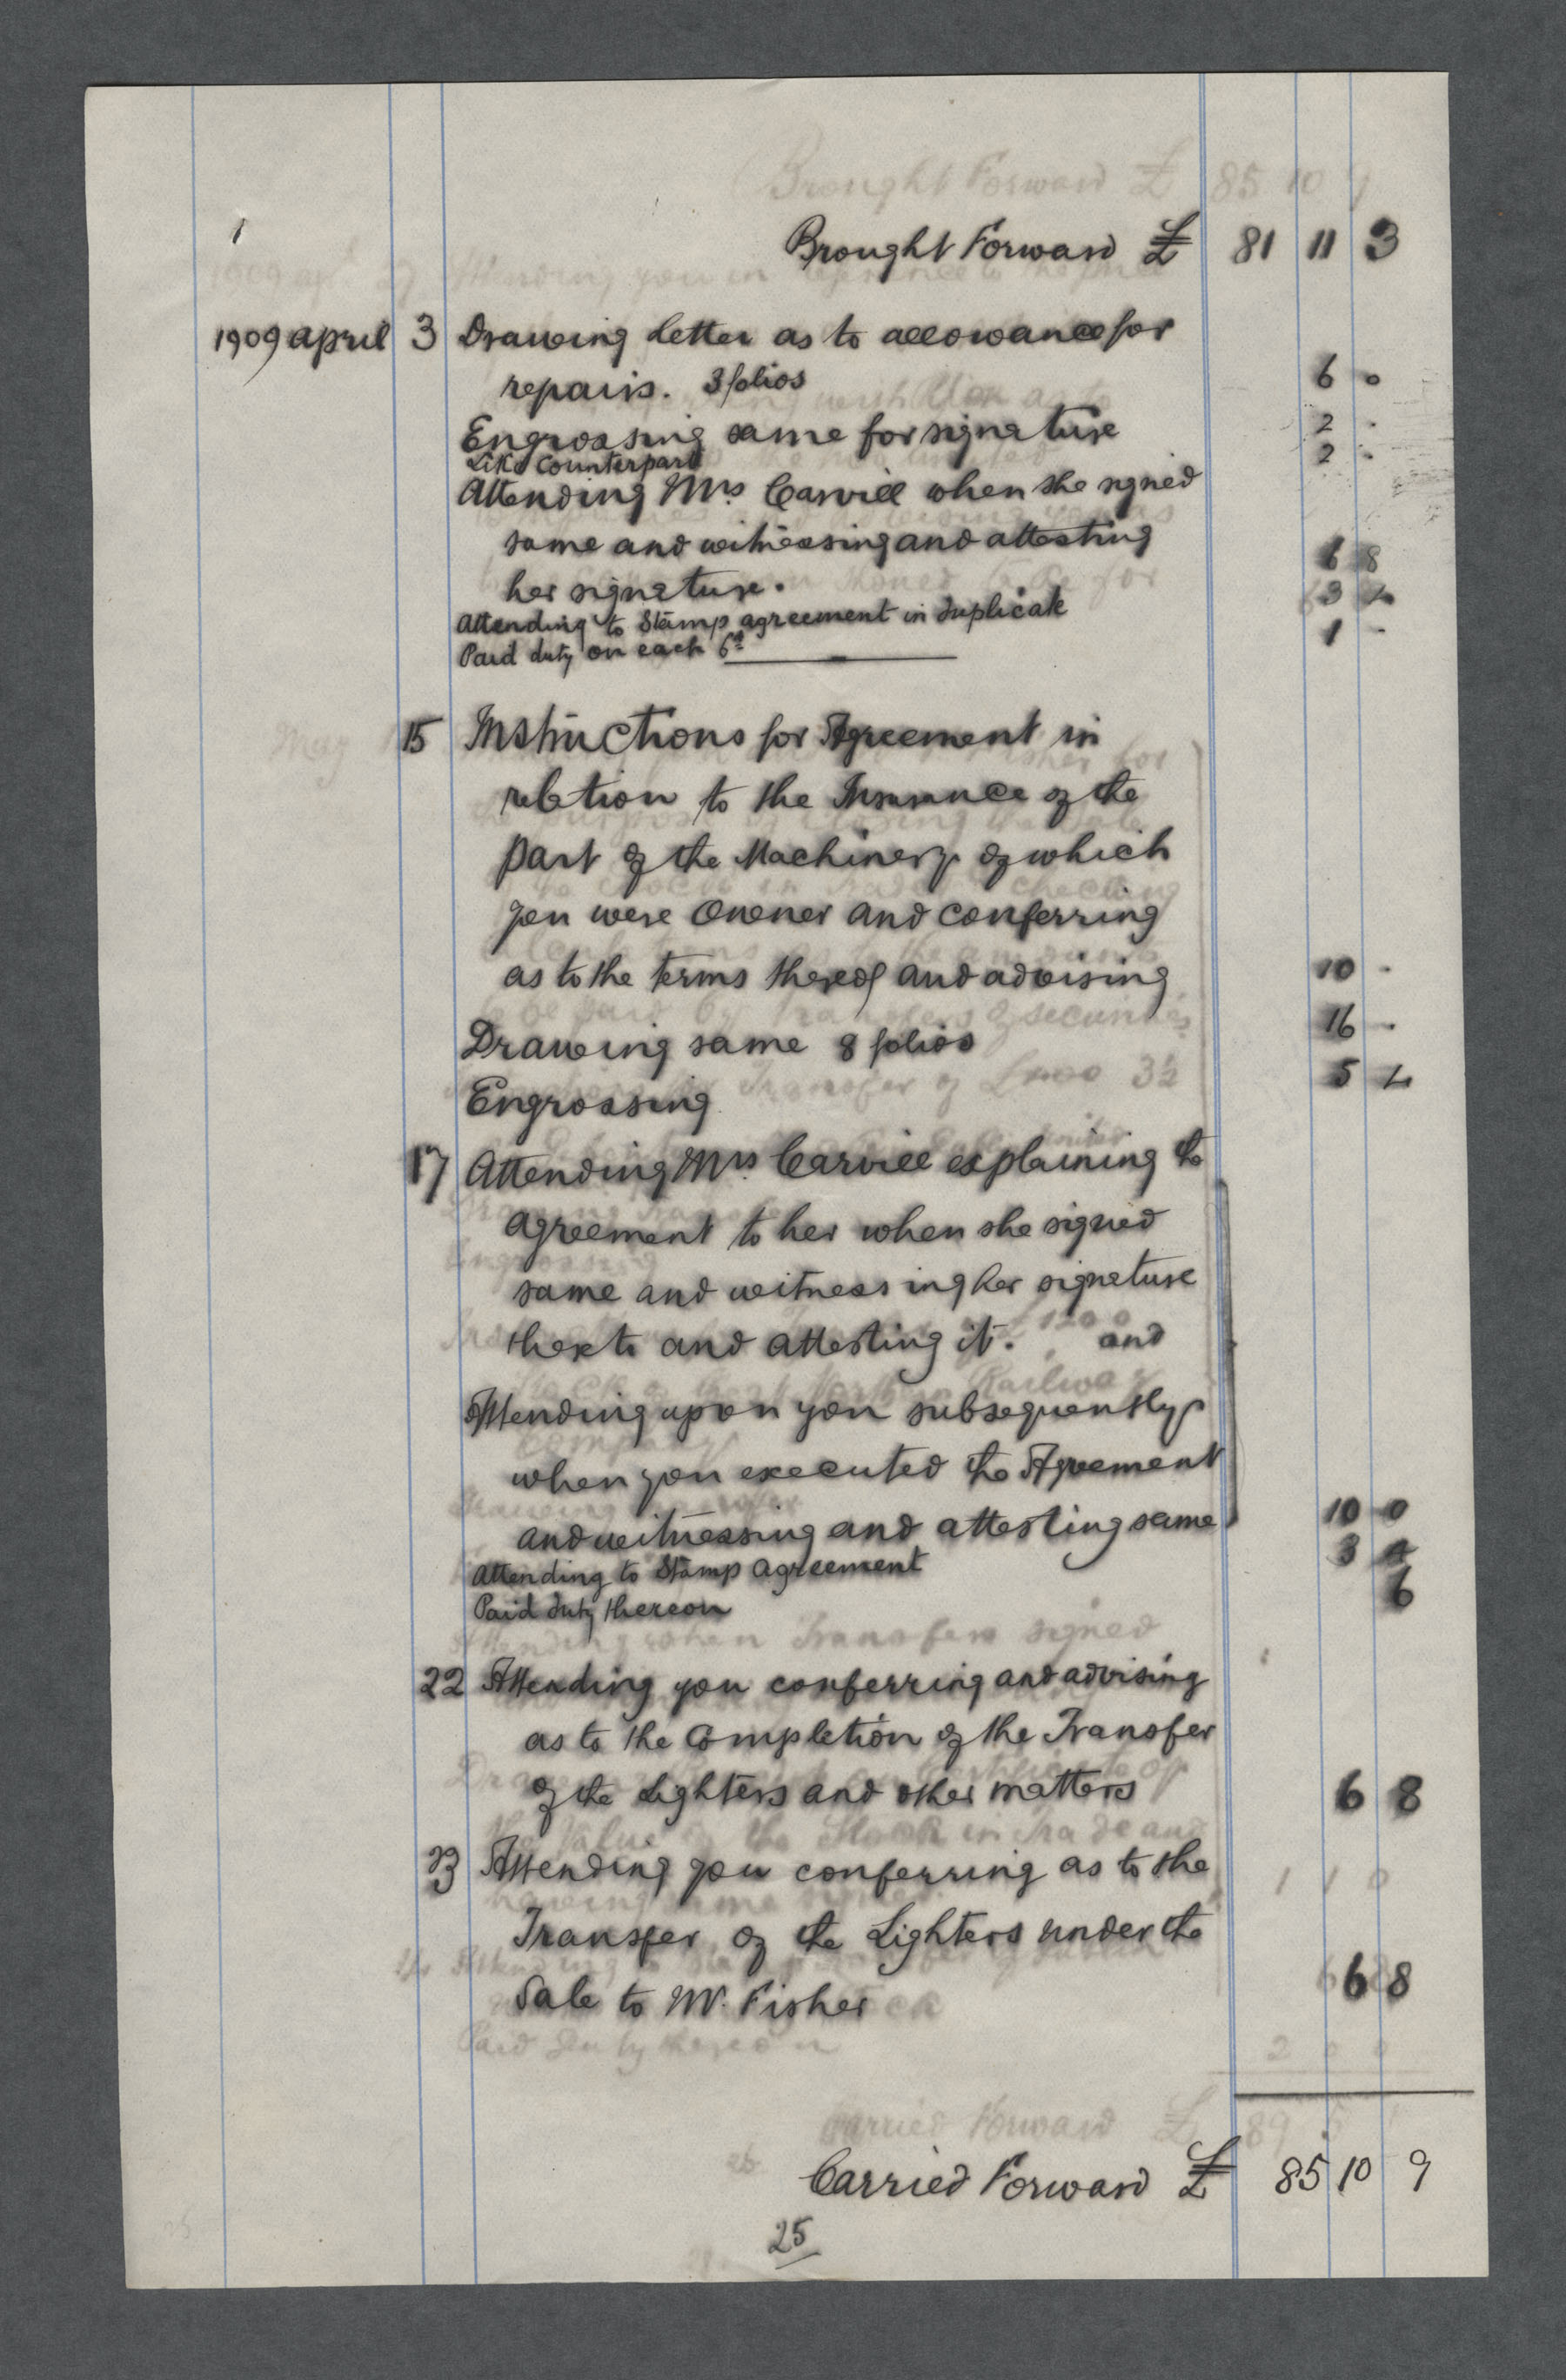 Brought Forward £ 81 11 3
1909 april 3 Drawing letter as to allowance for
repairs. 3 folios 6 0
Engrossing same for signature 2 -
Like Counterpart 2 -
Attending Mrs. Carvill when she signed
same and witnessing and attesting
her signature. 6 8
Attending to Stamp agreement in duplicate 3 4
Paid duty on each 6d 1 -
15 Instructions for Agreement in
relation to the Insurance of the
part of the Machinery of which
you were Owner and conferring
as to the terms thereof and advising 10 -
Drawing same 8 folios 16 -
Engrossing 5 4
17 Attending Mrs. Carvill explaining the
agreement to her when she signed
same and witnessing her signature
thereto and attesting it. and
Attending upon you subsequently
when you executed the Agreement
and witnessing and attesting same 10 0
Attending to Stamp Agreement 3 4
Paid duty thereon 6
22 Attending you conferring and advising
as to the Completion of the Transfer
of the Lighters and other matters 6 8
23 Attending you conferring as to the
Transfer of the Lighters under the
Sale to Mr. Fisher 6 8
Carried Forward £ 85 10 9
25